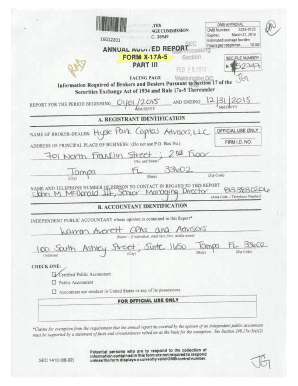 16012201
OMB APPROVAL
OMB Number: 3235-0123
Expires: March 31, 2016
Estimated average burden
hours per response 12.00
ANNUAL AUDITED REPORT
FORM X-17A-5
PART III
SEC
Section
SEC FILE NUMBER
Washington DC
FACING PAGE
Information Required of Brokers and Dealers Pursuant to Section 17 of the
Securities Exchange Act of 1934 and Rule 17a-5 Thereunder
REPORT FOR THE PERIOD BEGINNING 01/01/2015 AND ENDING 12/31/2015
MM/DD/YY MM/DD/YY
A. REGISTRANT IDENTIFICATION
NAME OF BROKER-DEALER: Hyde Park Capital Advisors, LLC
OFFICIAL USE ONLY
ADDRESS OF PRINCIPAL PLACE OF BUSINESS: (Do not use P.O. Box No.)
FIRM I.D. NO.
701 North Franklin Street 2nd Floor
(No. and Street)
Tampa FL 33602
(City) (State) (Zip Code)
NAME AND TELEPHONE NUMBER OF PERSON TO CONTACT IN REGARD TO THIS REPORT
John H. McDonald II, Senior Managing Director
(Area Code - Telephone Number)
B. ACCOUNTANT IDENTIFICATION
INDEPENDENT PUBLIC ACCOUNTANT whose opinion is contained in this Report*
Warren Averett CPAs and Advisors
(Name - if individual, state last, first, middle name)
100 South Ashley Street, Suite 1650 Tampa FL 33602
(Address) (City) (State) (Zip Code)
CHECK ONE:
Certified Public Accountant
Public Accountant
Accountant not resident in United States or any of its possessions.
FOR OFFICIAL USE ONLY
*Claims for exemption from the requirement that the annual report be covered by the opinion of an independent public accountant
must be supported by a statement of facts and circumstances relied on as the basis for the exemption. See Section 240.17a-5(e)(2)
SEC 1410 (06-02)
Potential persons who are to respond to the collection of
information contained in this form are not required to respond
unless the form displays a currently valid OMB control number.